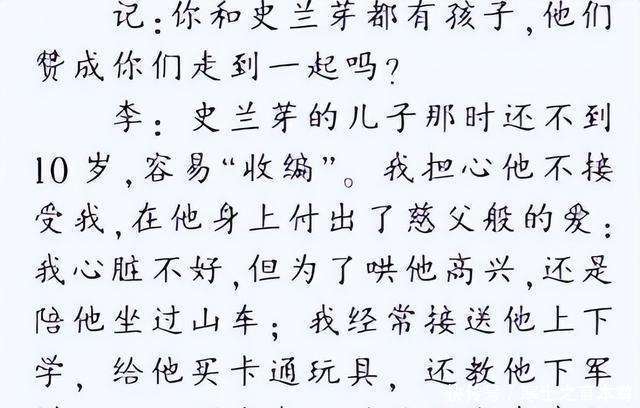 记:你和史兰芽都有孩子,他们
赞成你们走到一起吗?
李: 史兰芽的儿子那时还不到
10岁,容易“收编”。我担心他不接
受我,在他身上付出了慈父般的爱:
我心脏不好,但为了哄他高兴,还是
陪他坐过山车; 我经常接送他上下
学, 给他买卡通玩具, 还教他下军